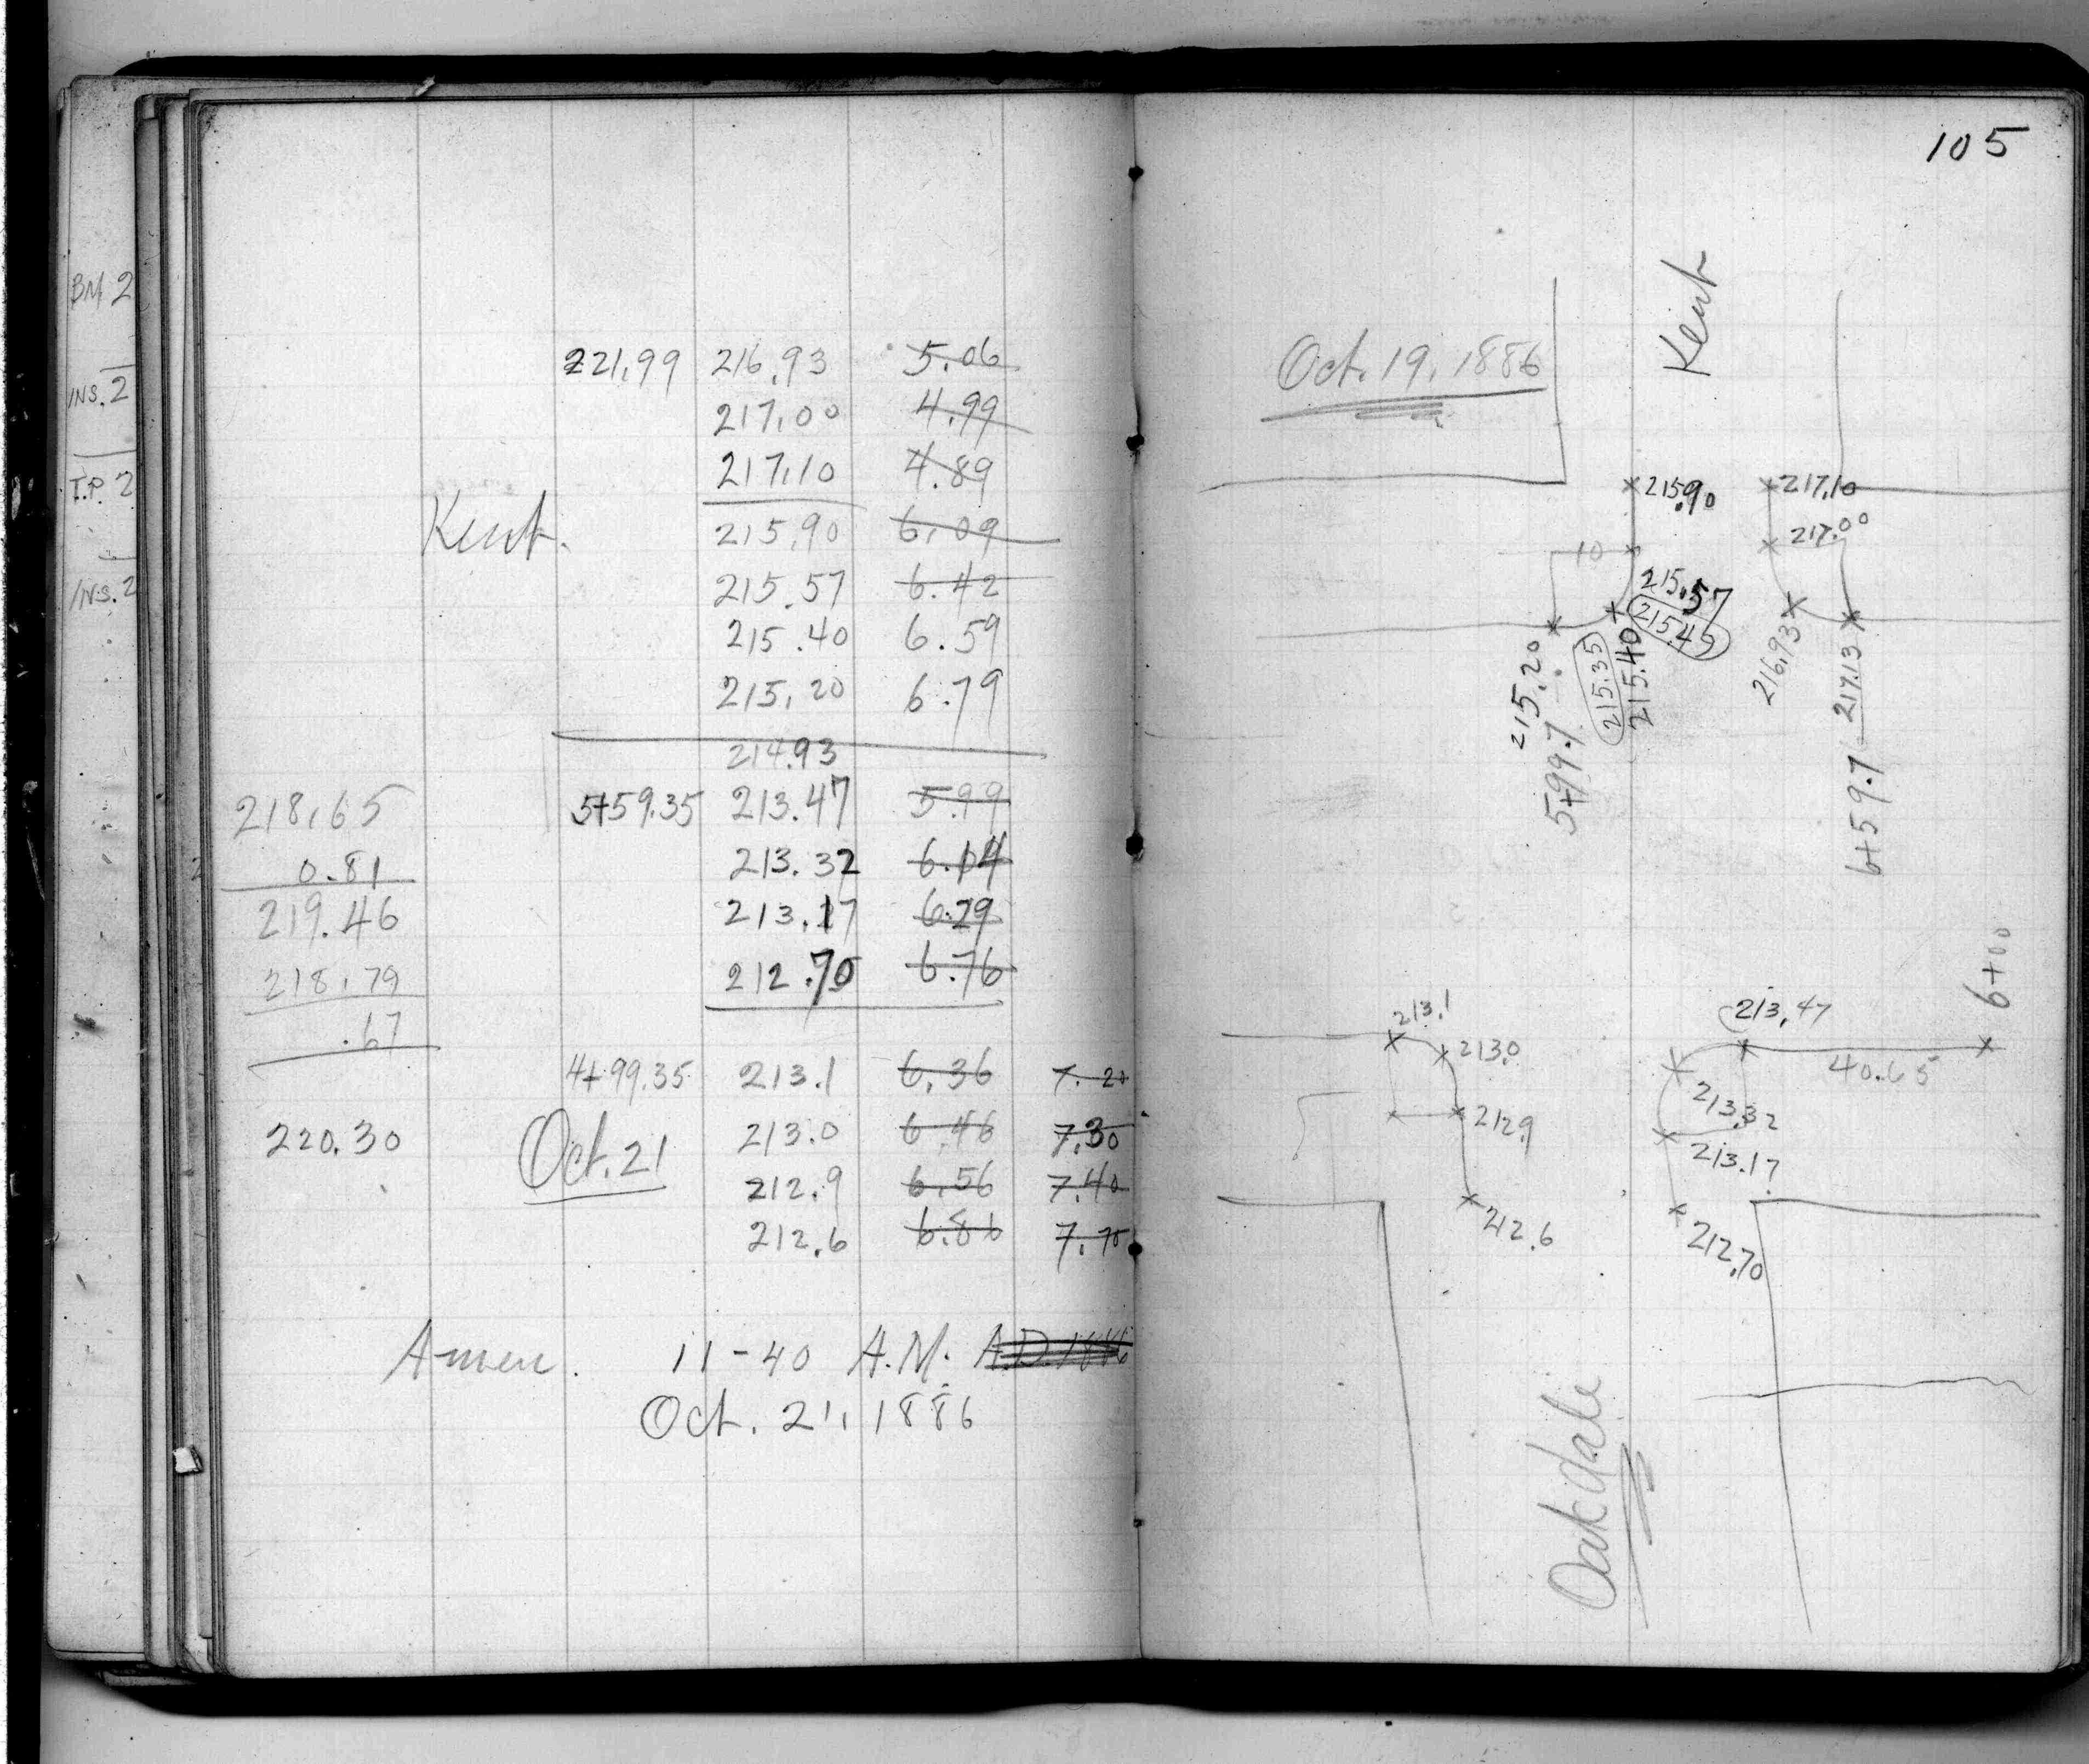 105
BM. 2
INS. 2
T.P. 2
INS. 2
221.99 216.93 5.06
217.00 4.99
217.10 4.89
Kent. 215.90 6.09
215.57 6.42
215.40 6.59
215.20 6.79
214.93
218.65 5+59.35 213.47 5.99
0.81 213.32 6.14
219.46 213.17 6.29
218.79 212.70 6.76
.67
4+99.35 213.1 6.36 7.20
220.30 Oct. 21 213.0 6.46 7.30
212.9 6.56 7.40
212.6 6.86 7.70
Amen. 11-40 A.M. A.D. 1886
Oct. 21, 1886
Kent
Oct. 19, 1886
215.90 217.10
10 217.00
215.57
215.45
215.20
215.35
215.40
216.93
217.13
5+99.7
6+59.7
6+00
213.1 213.47
213.0 40.65
213.32
212.9
213.17
212.6 212.70
Oakdale